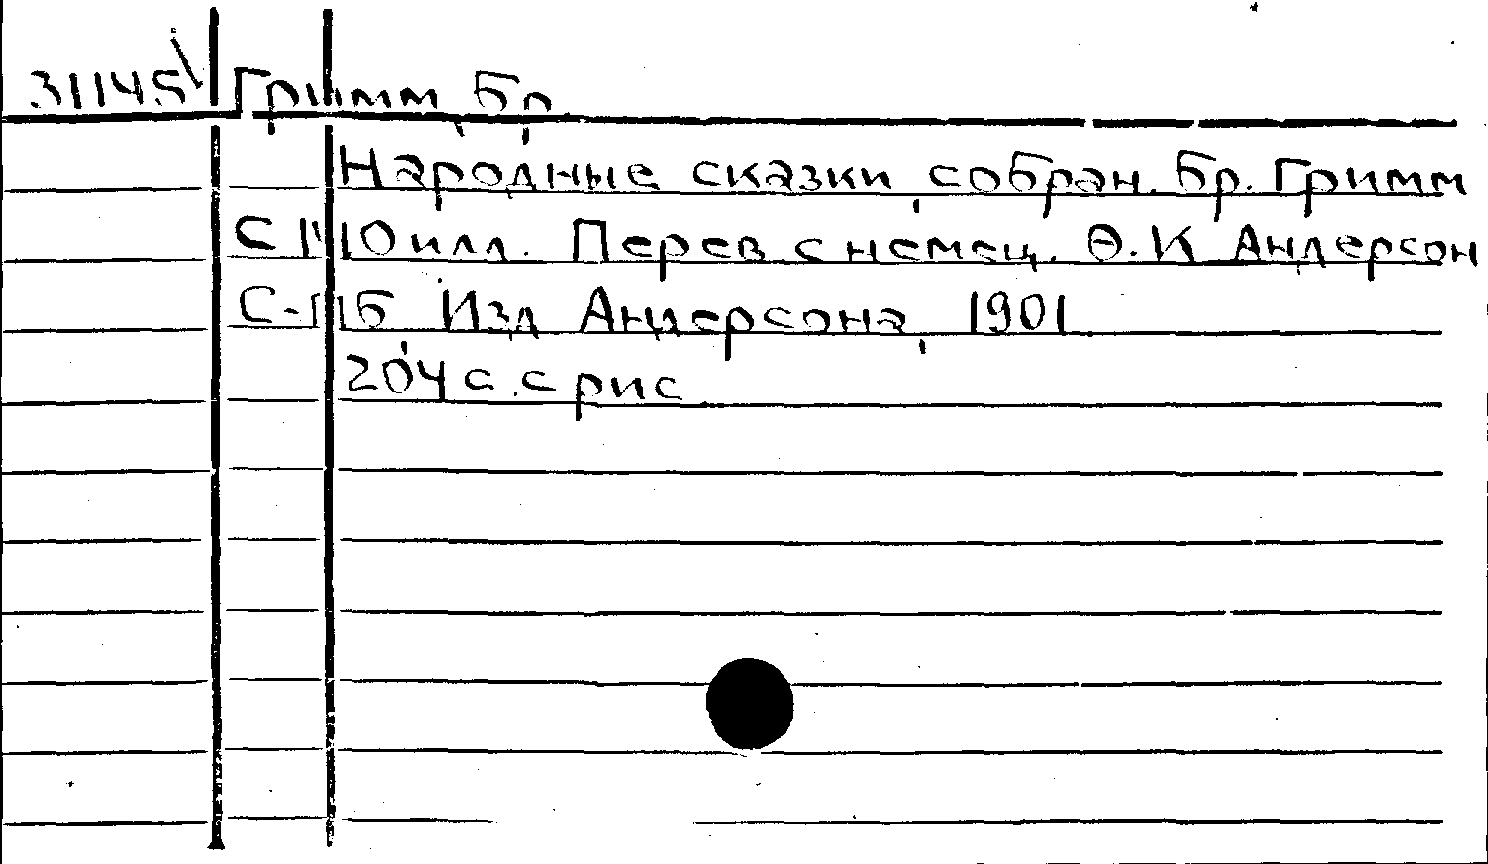 31145 Гримм, бр.
Народные сказки, собран. бр. Гримм
С 110 илл. Перев с немец. Ѳ. К Андерсон
С-Пб Изд Андерсона, 1901
204 с. с рис